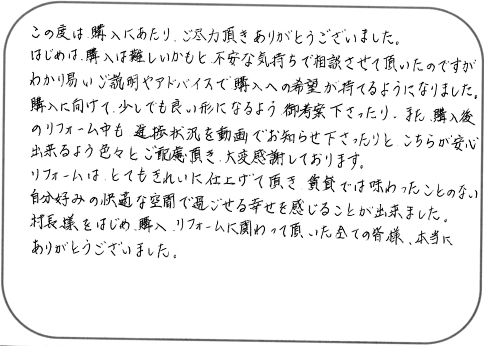 この度は、購入にあたり、ご尽力頂きありがとうございました。
はじめは、購入は難しいかもと、不安な気持ちで相談させて頂いたのですが
わかり易いご説明やアドバイスで購入への希望が持てるようになりました。
購入に向けて、少しでも良い形になるよう御考案下さったり、また、購入後
のリフォーム中も進捗状況を動画でお知らせ下さったりと、こちらが安心
出来るよう色々とご配慮頂き、大変感謝しております。
リフォームは、とてもきれいに仕上げて頂き、賃貸では味わったことのない
自分好みの快適な空間で過ごせる幸せを感じることが出来ました。
村長様をはじめ、購入、リフォームに関わって頂いた全ての皆様、本当に
ありがとうございました。